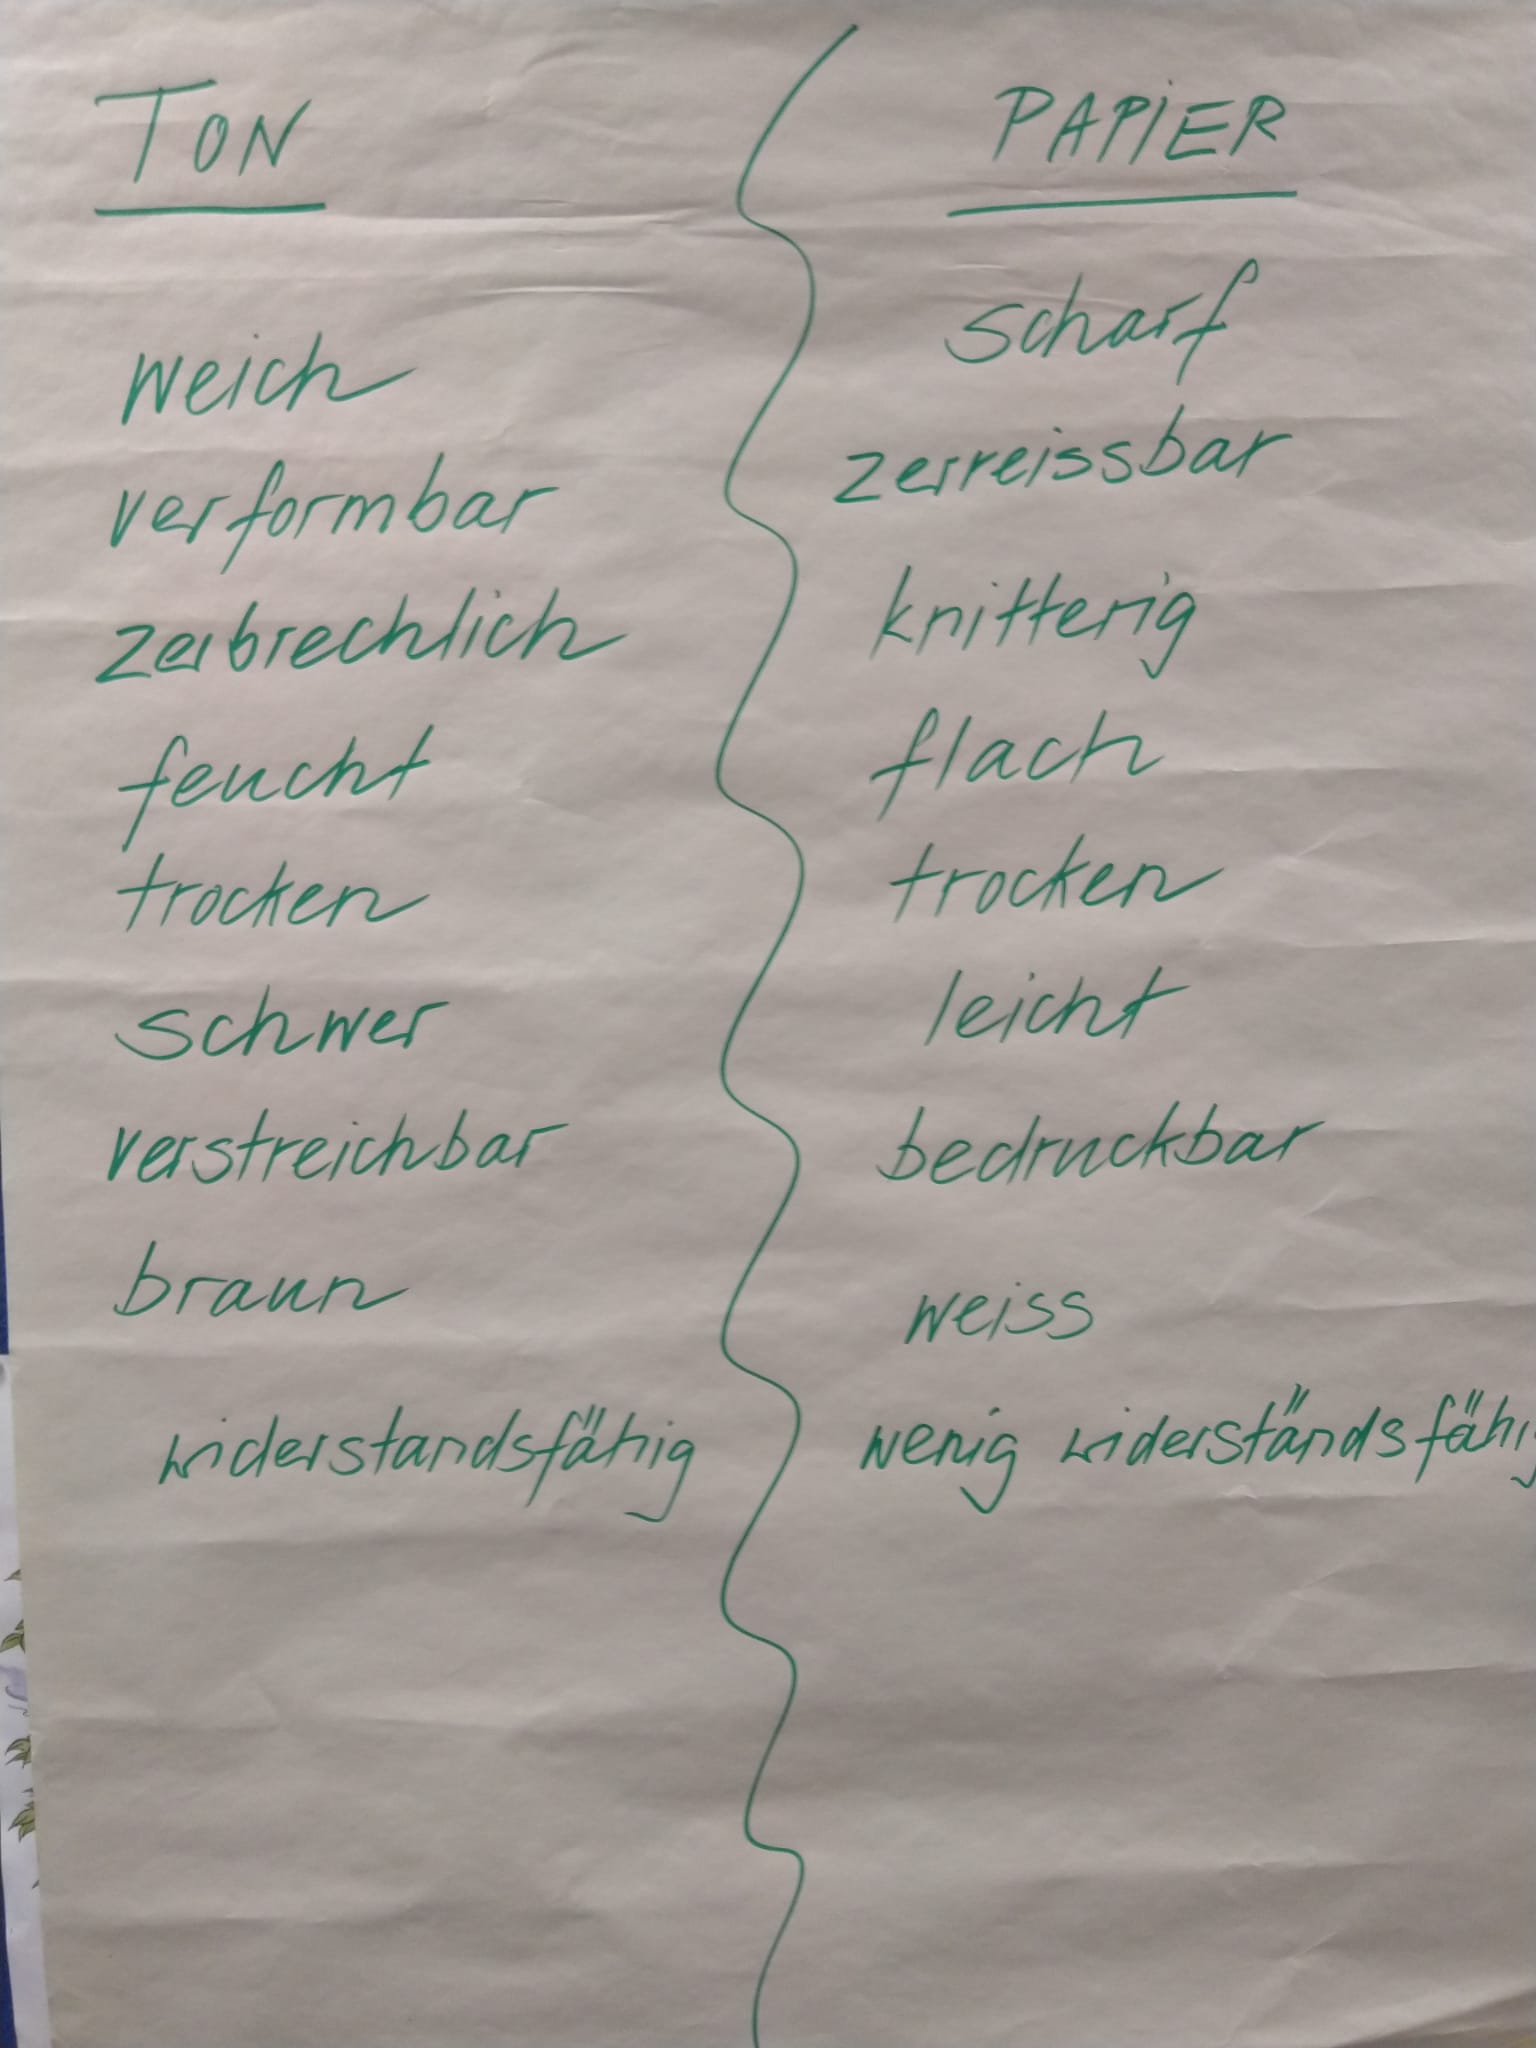 TON
weich
verformbar
zerbrechlich
feucht
trocken
schwer
verstreichbar
braun
widerstandsfähig
PAPIER
scharf
zerreissbar
knitterig
flach
trocken
leicht
bedruckbar
weiss
wenig widerständsfähig